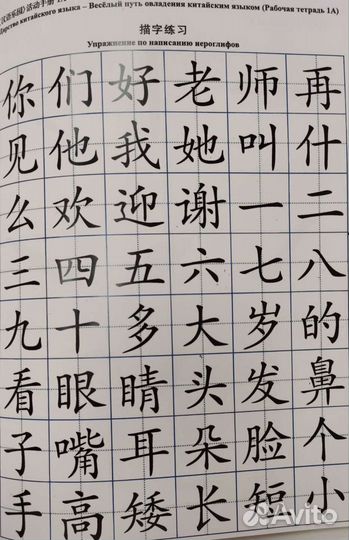 汉语乐园》活动手册
Царство китайского языка – Весёлый путь овладения китайским языком (Рабочая тетрадь 1А)
描字练习
Упражнение по написанию иероглифов
你们好老师再
见他我她叫什
么欢迎谢一二
三四五六七八
九十多大岁的
看眼睛头发鼻
子嘴耳朵脸个
手高矮长短小
Avito